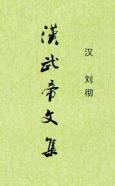 漢武帝文集
汉 刘彻